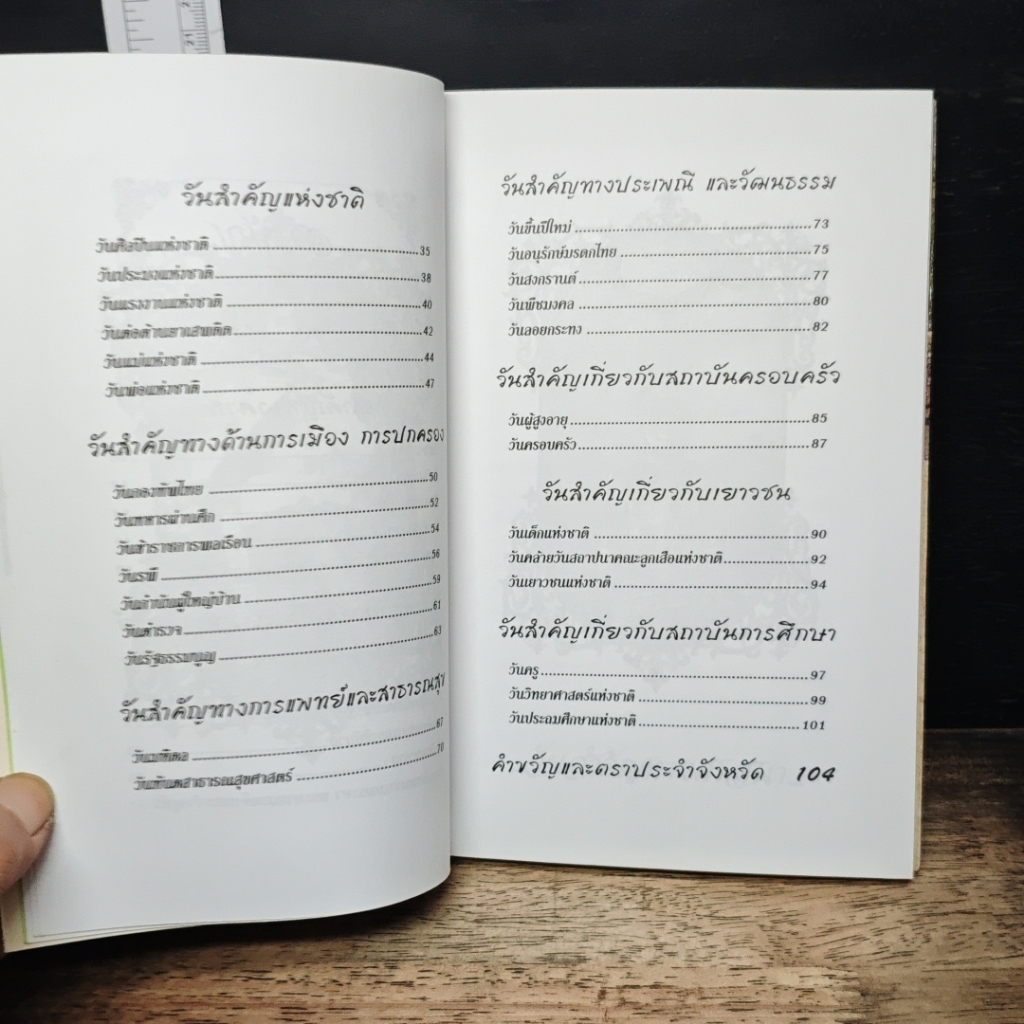 วันสำคัญแห่งชาติ
วันศิลปินแห่งชาติ 35
วันประมงแห่งชาติ 38
วันแรงงานแห่งชาติ 40
วันต่อต้านยาเสพติด 42
วันแม่แห่งชาติ 44
วันพ่อแห่งชาติ 47
วันสำคัญทางด้านการเมือง การปกครอง
วันกองทัพไทย 50
วันทหารผ่านศึก 52
วันข้าราชการพลเรือน 54
วันรพี 56
วันกำนันผู้ใหญ่บ้าน 59
วันตำรวจ 61
วันรัฐธรรมนูญ 63
วันสำคัญทางการแพทย์และสาธารณสุข
วันมหิดล 67
วันทันตสาธารณสุขศาสตร์ 70
วันสำคัญทางประเพณี และวัฒนธรรม
วันขึ้นปีใหม่ 73
วันอนุรักษ์มรดกไทย 75
วันสงกรานต์ 77
วันพืชมงคล 80
วันลอยกระทง 82
วันสำคัญเกี่ยวกับสถาบันครอบครัว
วันผู้สูงอายุ 85
วันครอบครัว 87
วันสำคัญเกี่ยวกับเยาวชน
วันเด็กแห่งชาติ 90
วันคล้ายวันสถาปนาคณะลูกเสือแห่งชาติ 92
วันเยาวชนแห่งชาติ 94
วันสำคัญเกี่ยวกับสถาบันการศึกษา
วันครู 97
วันวิทยาศาสตร์แห่งชาติ 99
วันประถมศึกษาแห่งชาติ 101
คำขวัญและตราประจำจังหวัด 104